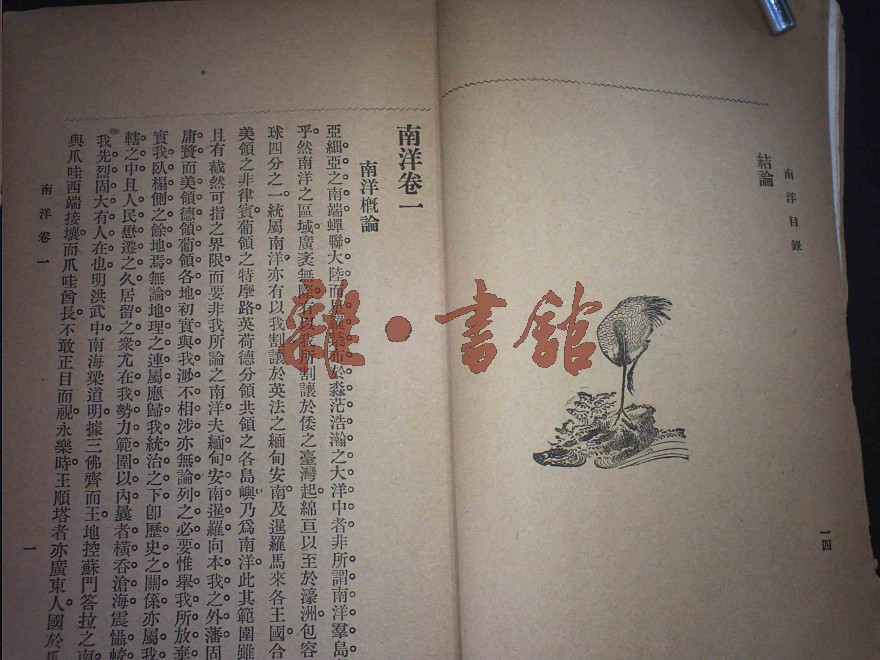 南洋目錄
結論
一四
雜·書館
南洋卷一
南洋概論
亞細亞之南端蟬聯大陸而星羅棊布於淼茫浩瀚之大洋中者非所謂南洋羣島
乎。然南洋之區域廣袤無際。有以我所割讓於倭之臺灣起綿亘以至於濠洲。包容
球四分之一。統屬南洋。亦有以我割讓於英法之緬甸安南。及暹羅馬來各王國。合
美領之非律賓。葡領之特摩路。英荷德分領共領之各島嶼。乃爲南洋。此其範圍雖
且有截然可指之界限。而要非我所論之南洋。夫緬甸安南暹羅。向本我之外藩。固
庸贅。而美領德領葡領各地。初實與我渺不相涉。亦無論列之必要。惟舉我所放棄
實我臥榻側之餘地焉。無論地理之連屬應歸我統治之下。卽歷史之關係亦屬我
轄之中。且人民懋遷之久。居留之衆。尤在我勢力範圍以內。曩者橫吞滄海。震懾
我先烈固大有人在也。明洪武中。南海梁道明據三佛齊而王。地控蘇門答拉之南
與爪哇西端接壤。而爪哇酋長。不敢正目而視。永樂時。王順塔者亦廣東人。國於爪
南洋卷一
一